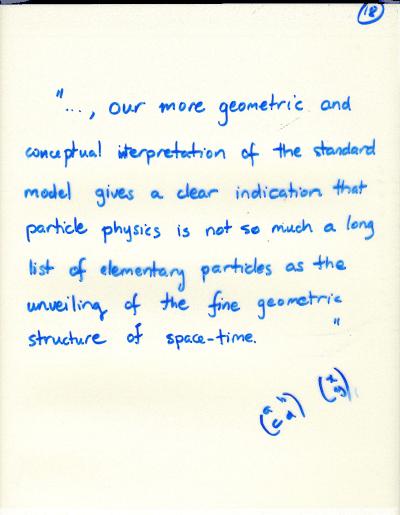 18
"..., our more geometric and
conceptual interpretation of the standard
model gives a clear indication that
particle physics is not so much a long
list of elementary particles as the
unveiling of the fine geometric
structure of space-time. "